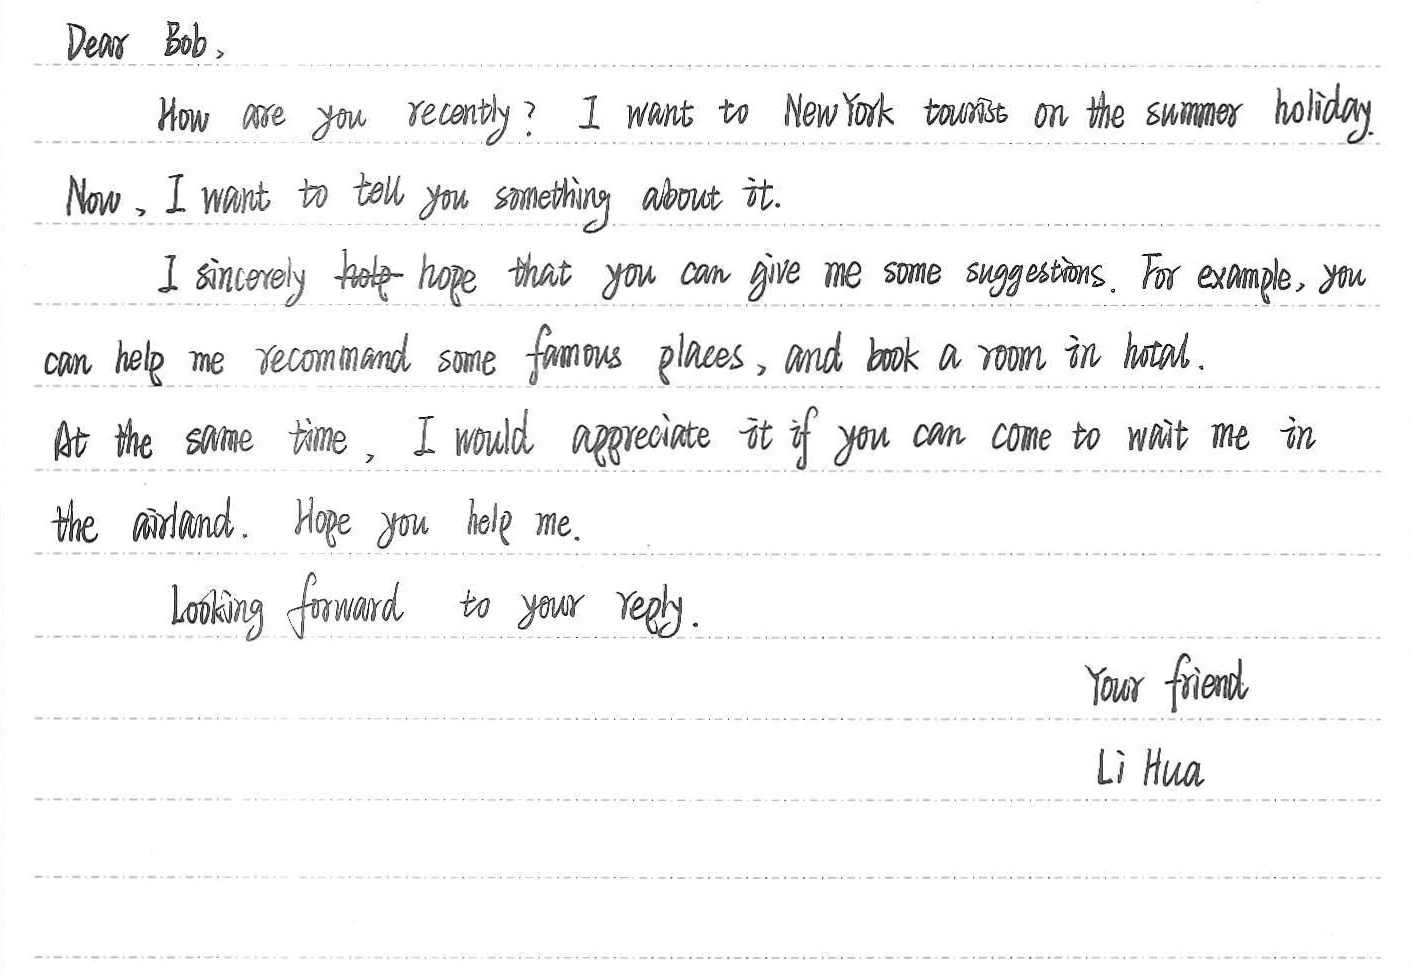 Dear Bob,
How are you recently? I want to New York tourist on the summer holiday.
Now, I want to tell you something about it.
I sincerely hope that you can give me some suggestions. For example, you
can help me recommand some famous places, and book a room in hotal.
At the same time, I would appreciate it if you can come to wait me in
the airland. Hope you help me.
Looking forward to your reply.
Your friend
Li Hua